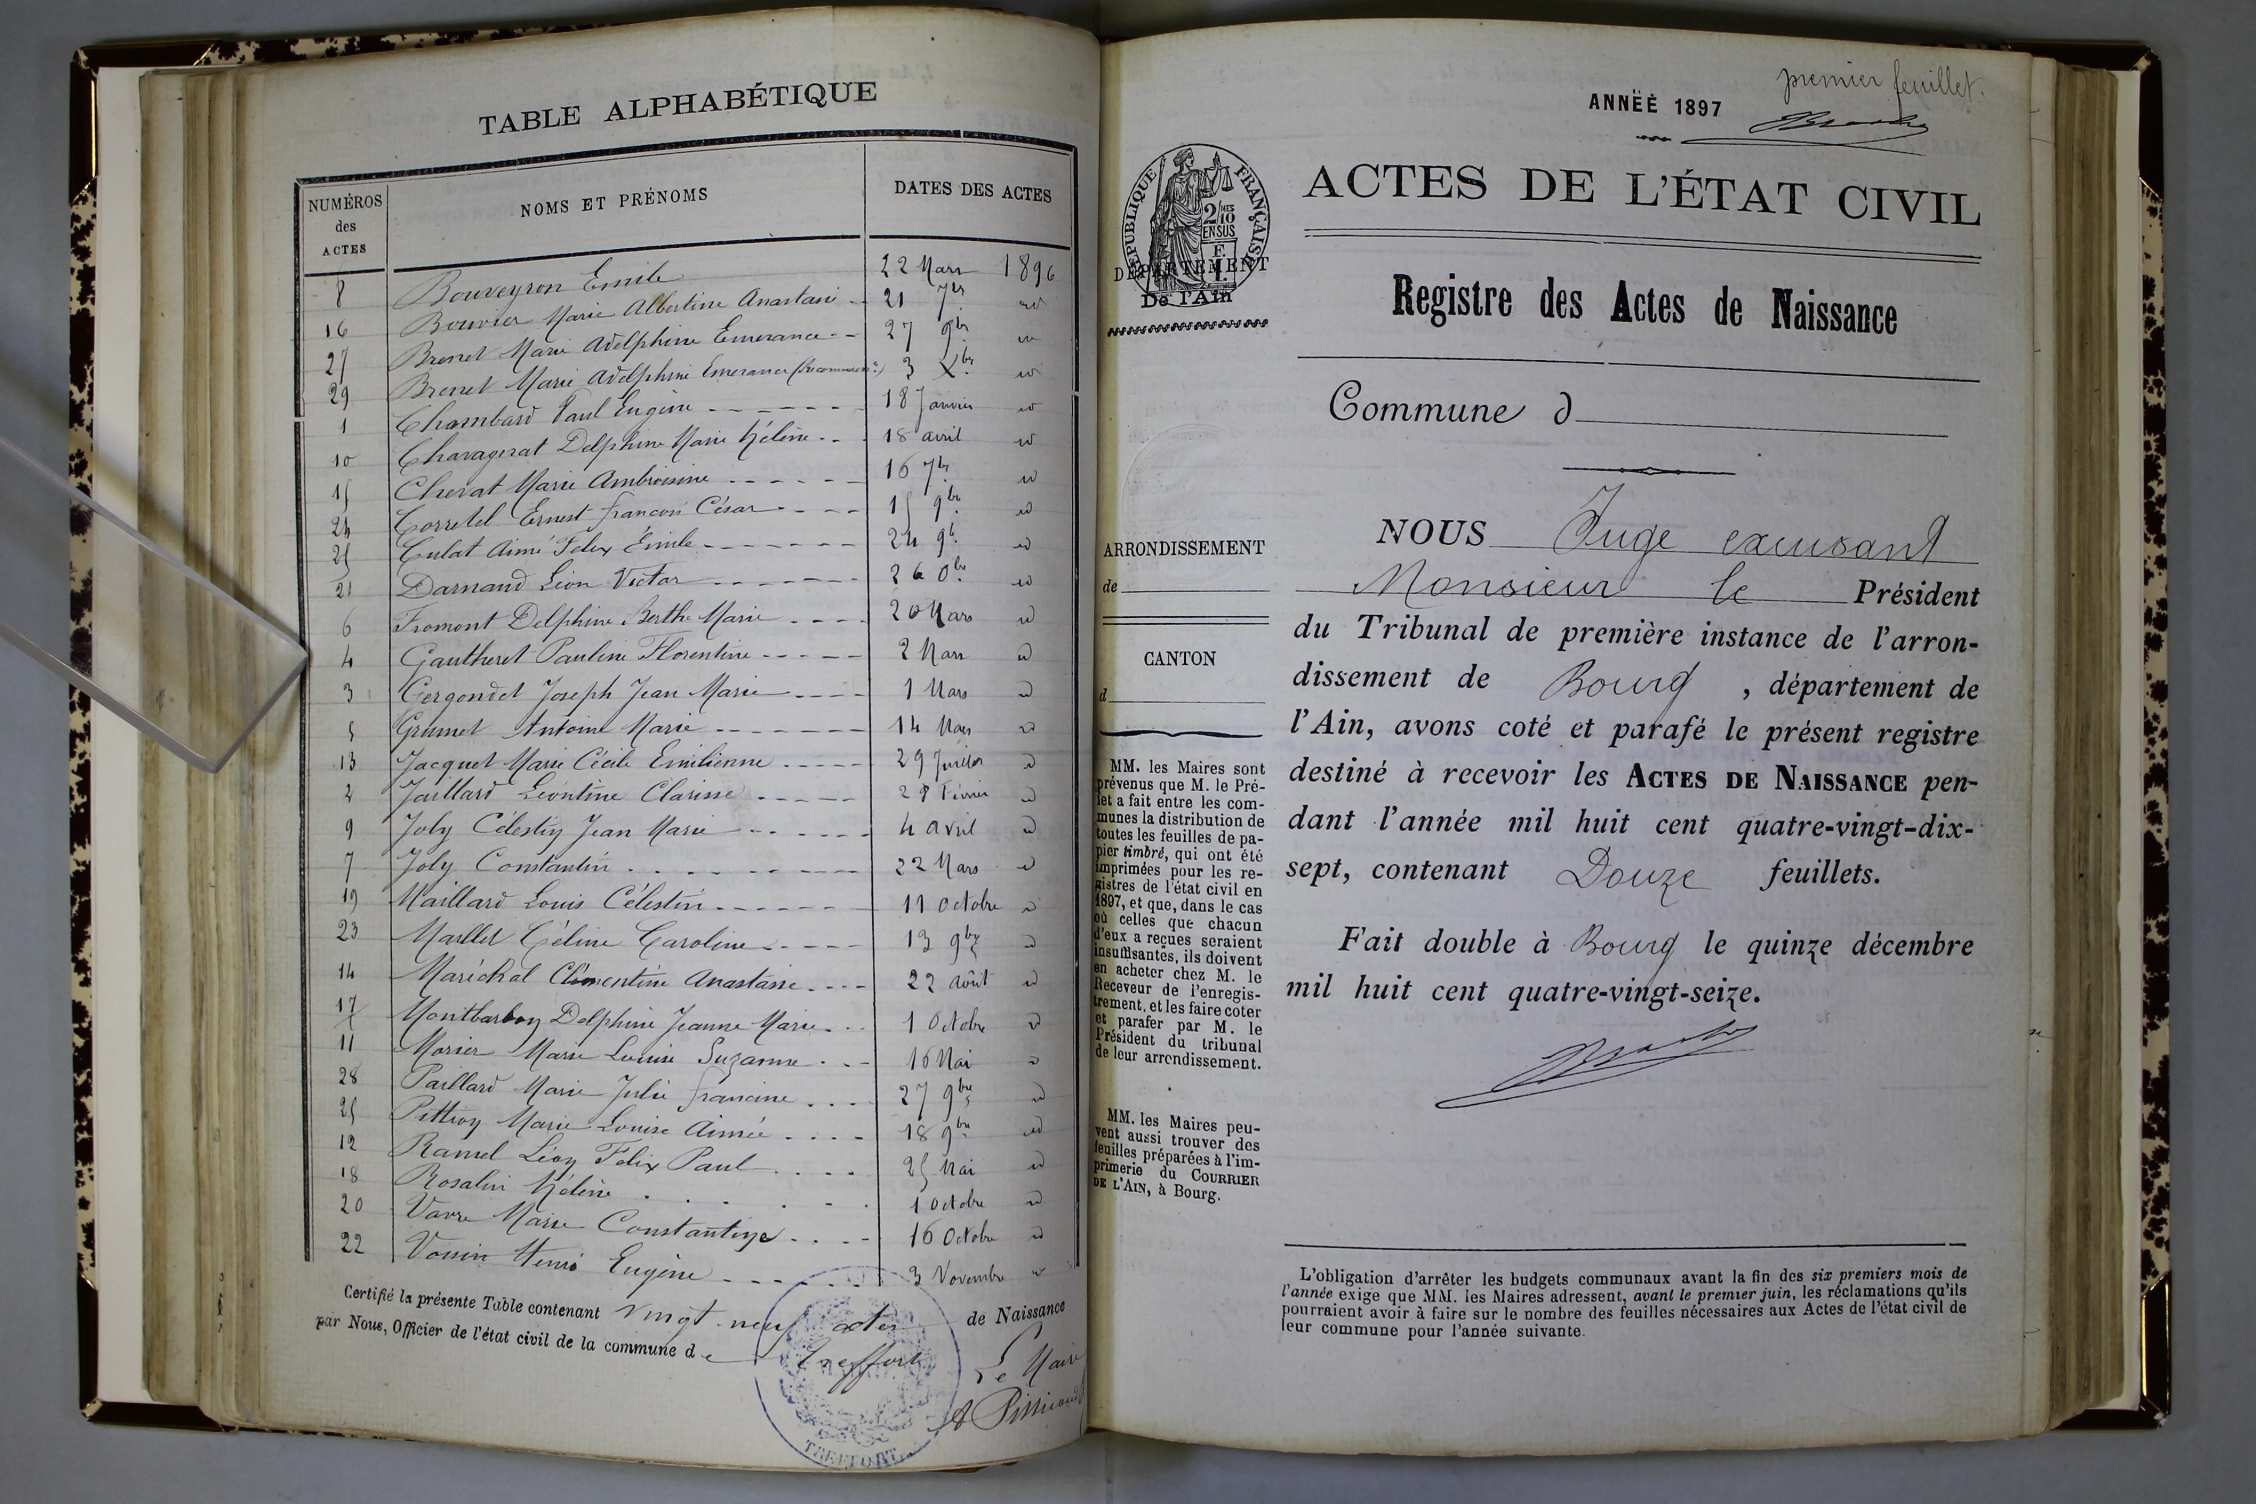 TABLE ALPHABÉTIQUE
NUMÉROS des ACTES NOMS ET PRÉNOMS DATES DES ACTES
8 Bouveyron Emile 22 Mars 1896
16 Bouvier Marie Albertine Anastasie 21 7br id
27 Brenet Marie Adelphine Emerance 27 9br id
29 Brenet Marie Adelphine Emerance 3 Xbr id
1 Chambard Paul Eugène 18 Janvier id
10 Charagerat Delphine Marie Hélène 18 avril id
15 Chevat Marie Ambroisine 16 7br id
24 Corretel Ernest françois César 15 9br id
25 Culat Aimé Felix Émile 24 9br id
21 Darnand Léon Victor 26 8br id
6 Fromont Delphine Berthe Marie 20 Mars id
4 Gautheret Pauline Florentine 2 Mars id
3 Gergondet Joseph Jean Marie 1 Mars id
5 Grumet Antoine Marie 14 Mars id
13 Jacquet Marie Cécile Emilienne 29 Juillet id
2 Jaillard Léontine Clarisse 28 Février id
9 Joly Célestin Jean Marie 4 avril id
7 Joly Constantin 22 Mars id
19 Maillard Louis Célestin 11 octobre id
23 Maillet Céline Caroline 13 9bre id
14 Maréchal Clémentine Anastasie 22 août id
17 Montbarbon Delphine Jeanne Marie 1 Octobre id
11 Morier Marie Louise Suzanne 16 Mai id
28 Paillard Marie Julie francine 27 9bre id
25 Pittion Marie Louise Aimée 18 9bre id
12 Ramel Léon Felix Paul 25 Mai id
18 Rosalin Hélène 1 octobre id
20 Vavre Marie Constantine 16 Octobre id
22 Voisin Henri Eugène 3 Novembre id
Certifié la présente Table contenant vingt-neuf actes de Naissance
par Nous, Officier de l'état civil de la commune de Treffort
Le Maire
TREFFORT
premier feuillet.
ANNÉE 1897
RÉPUBLIQUE FRANÇAISE
2/10 MES
EN SUS
DÉPARTEMENT
De l'Ain
ACTES DE L'ÉTAT CIVIL
Registre des Actes de Naissance
Commune d
ARRONDISSEMENT
de
CANTON
d
MM. les Maires sont
prévenus que M. le Pré-
fet a fait entre les com-
munes la distribution de
toutes les feuilles de pa-
pier timbré, qui ont été
imprimées pour les re-
gistres de l'état civil en
1897, et que, dans le cas
où celles que chacun
d'eux a reçues seraient
insuffisantes, ils doivent
en acheter chez M. le
Receveur de l'enregis-
trement, et les faire coter
et parafer par M. le
Président du tribunal
de leur arrondissement.
MM. les Maires peu-
vent aussi trouver des
feuilles préparées à l'im-
primerie du COURRIER
DE L'AIN, à Bourg.
NOUS Juge excusant
Monsieur le Président
du Tribunal de première instance de l'arron-
dissement de Bourg, département de
l'Ain, avons coté et parafé le présent registre
destiné à recevoir les ACTES DE NAISSANCE pen-
dant l'année mil huit cent quatre-vingt-dix-
sept, contenant Douze feuillets.
Fait double à Bourg le quinze décembre
mil huit cent quatre-vingt-seize.
L'obligation d'arrêter les budgets communaux avant la fin des six premiers mois de
l'année exige que MM. les Maires adressent, avant le premier juin, les réclamations qu'ils
pourraient avoir à faire sur le nombre des feuilles nécessaires aux Actes de l'état civil de
leur commune pour l'année suivante.